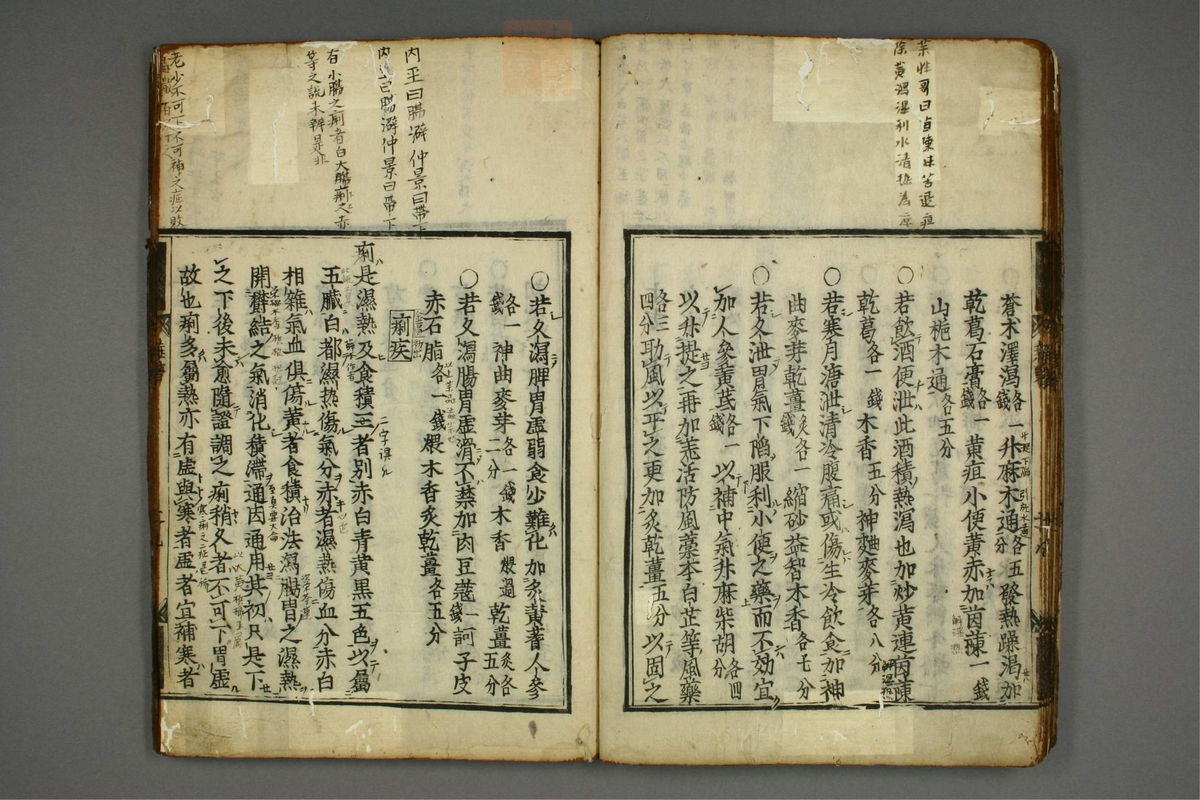 蒼朮澤瀉各一錢升麻木通各五分發熱躁渴加
乾葛石膏各一錢黄疸小便黄赤加茵蔯一錢
山梔木通各五分
○若飲酒便泄此酒積熱瀉也加炒黄連茵蔯
乾葛各一錢木香五分神麯麥芽各八分
○若寒月溏泄清冷腹痛或傷生冷飲食加神
曲麥芽乾薑炙各一錢縮砂益智木香各七分
○若久泄胃氣下陷服利小便之藥而不効宜
加人參黄芪各一錢以補中氣升麻柴胡各四分
以升提之再加羌活防風藁本白芷等風藥
各三四分助風以平之更加炙乾薑五分以固之
○若久瀉脾胃虚弱食少難化加炙黄蓍人參
各一錢神曲麥芽各一錢二分木香煨過乾薑炙各五分
○若久瀉腸胃虚滑不禁加肉豆蔲一錢訶子皮
赤石脂各一錢煨木香炙乾薑各五分
痢疾
痢是濕熱及食積三者別赤白青黄黒五色以屬
五臓白者濕熱傷氣分赤者濕熱傷血分赤白
相雜氣血俱傷黄者食積治法瀉腸胃之濕熱
開欝結之氣消化積滯通因通用其初只是下
之下後未愈隨證調之痢稍久者不可下胃虚
故也痢多屬熱亦有虚與寒者虚者宜補寒者
除黄
内王曰腸澼仲景曰帶下
有小腸之痢者白大腸痢之赤
等之説未辨是非
老少不可下不可補之症以敗